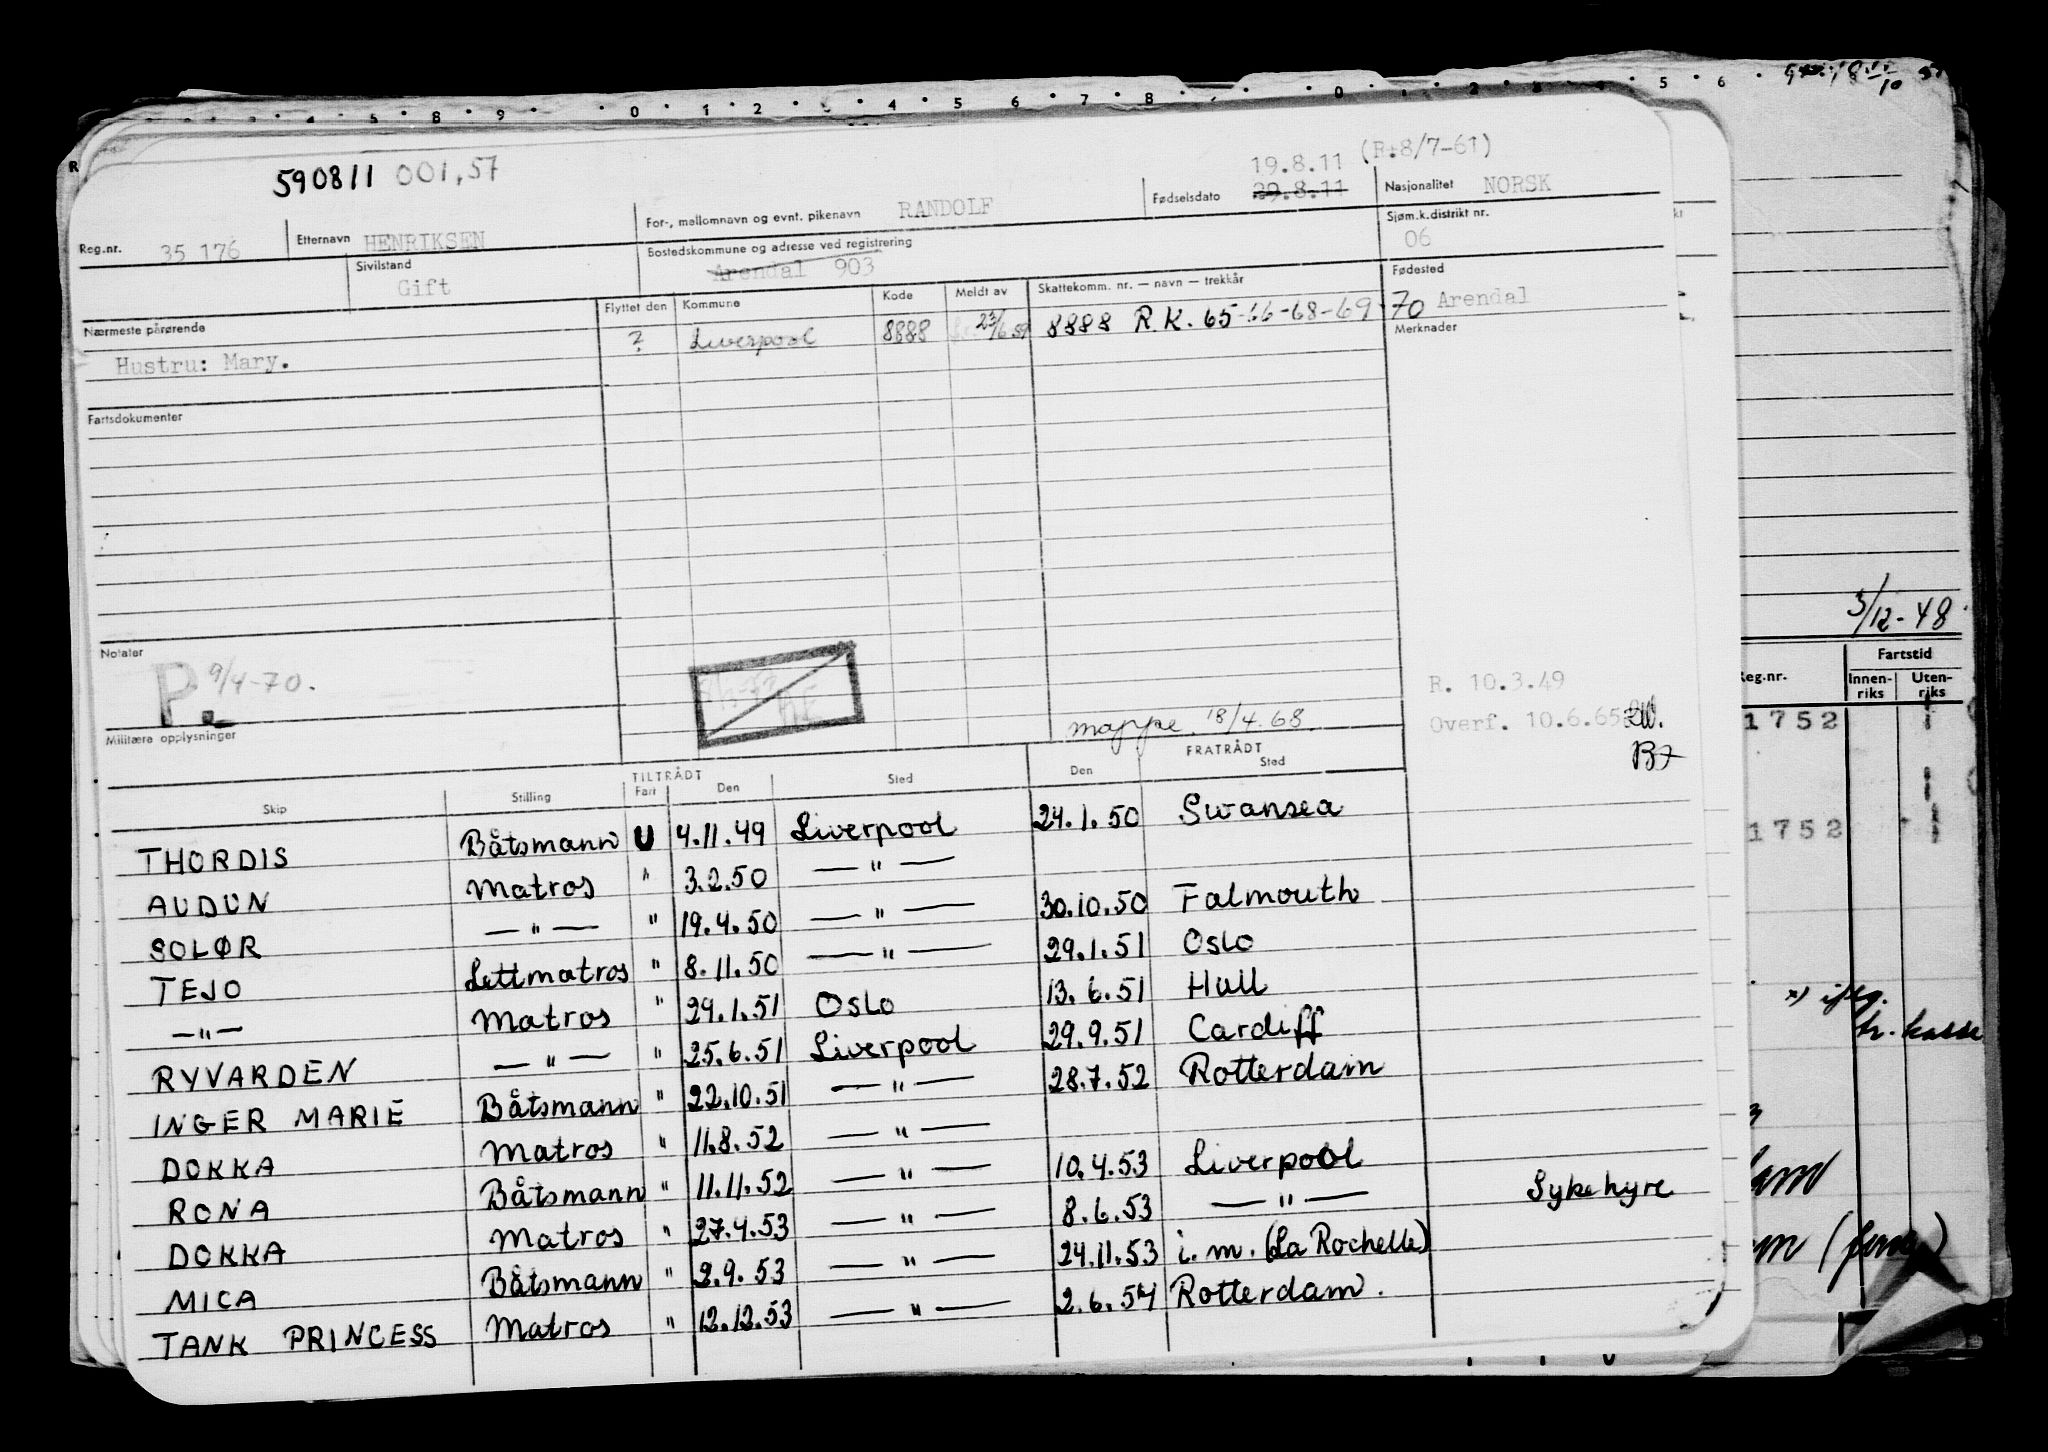 590811 001,57
19.8.11 (R:8/7-61)
Reg.nr. 35 176 Etternavn HENRIKSEN For-, mellomnavn og evnt. pikenavn RANDOLF Fødselsdato 29.8.11 Nasjonalitet NORSK
Sivilstand Gift Bostedskommune og adresse ved registrering Arendal 903 Sjøm.k.distrikt nr. 06
Nærmeste pårørende Flyttet den Kommune Kode Meldt av Skattekomm. nr. — navn — trekkår Fødested Arendal
Hustru: Mary. ? Liverpool 8888 23/6 59 8888 R.K. 65-66-68-69-70 Merknader
Fartsdokumenter
Notater
P. 9/4-70.
R. 10.3.49
Militære opplysninger mappe 18/4.68. Overf. 10.6.65
TILTRÅDT FRATRÅDT
Skip Stilling Fart Den Sted Den Sted
THORDIS Båtsmann U 4.11.49 Liverpool 24.1.50 Swansea
AUDUN Matros " 3.2.50 — " —
SOLØR — " — " 19.4.50 — " — 30.10.50 Falmouth
TEJO Lettmatros " 8.11.50 — " — 29.1.51 Oslo
— " — Matros " 29.1.51 Oslo 13.6.51 Hull
RYVARDEN — " — " 25.6.51 Liverpool 29.9.51 Cardiff
INGER MARIE Båtsmann " 22.10.51 — " — 28.7.52 Rotterdam
DOKKA Matros " 11.8.52 — " —
RONA Båtsmann " 11.11.52 — " — 10.4.53 Liverpool
DOKKA Matros " 27.4.53 — " — 8.6.53 — " — Sykehyre
MICA Båtsmann " 2.9.53 — " — 24.11.53 i.m. (La Rochelle)
TANK PRINCESS Matros " 12.12.53 — " — 2.6.54 Rotterdam.
5/12-48
Reg.nr. Fartstid
Innen-riks Uten-riks
1752
1752